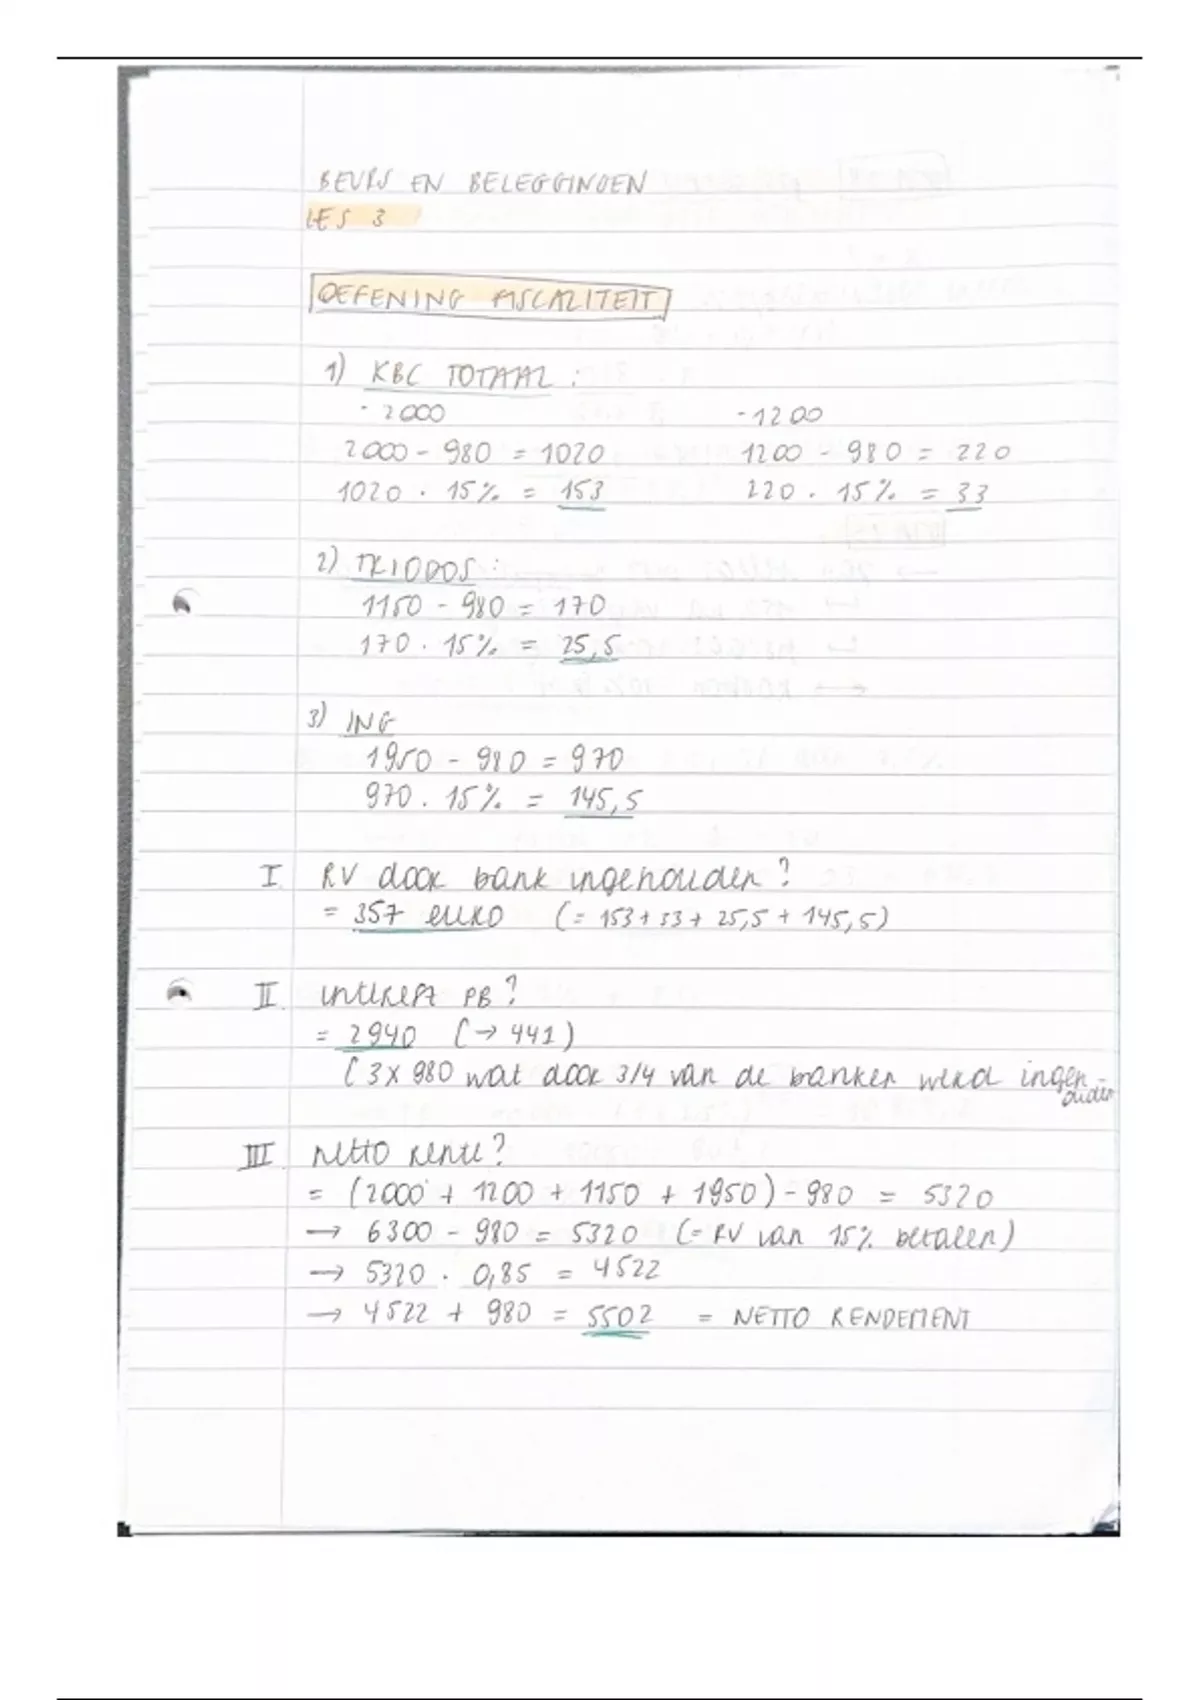 BEURS EN BELEGGINGEN
LES 3
OEFENING FISCALITEIT
1) KBC TOTAAL :
- 2000 - 1200
2000 - 980 = 1020 1200 - 980 = 220
1020 . 15% = 153 220 . 15% = 33
2) TRIODOS :
1150 - 980 = 170
170 . 15% = 25,5
3) ING
1950 - 980 = 970
970 . 15% = 145,5
I RV door bank ingehouden?
= 357 euro (= 153 + 33 + 25,5 + 145,5)
II interest PB?
= 2940 (→ 441)
(3 x 980 wat door 3/4 van de banken werd ingehouden
III netto rente?
= (2000 + 1200 + 1150 + 1950) - 980 = 5320
→ 6300 - 980 = 5320 (= RV van 15% betalen)
→ 5320 . 0,85 = 4522
→ 4522 + 980 = 5502 = NETTO RENDEMENT